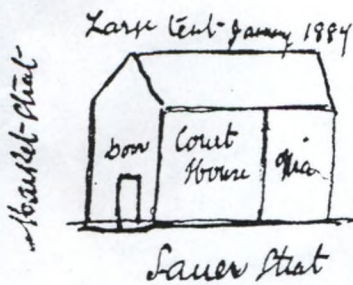 Large tent January 1887
Market Street
Door
Court
House
Sauer Street